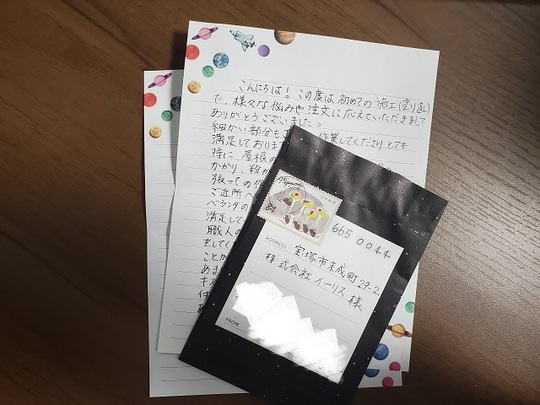 こんにちは！この度は初めての施工(塗り直し)
で、様々な悩みや注文に応えていただきまして
ありがとうございました。
細かい部分も 作業してくださりとても
満足しており
特に、屋根の
かかり、粉が
張っての作
ご近所へ
ベランダの
満足して
職人の
をしてく
ことが
あま
84
665 0044
ADDRESS
宝塚市末成町29-2
株式会社イーリス 様
FROM